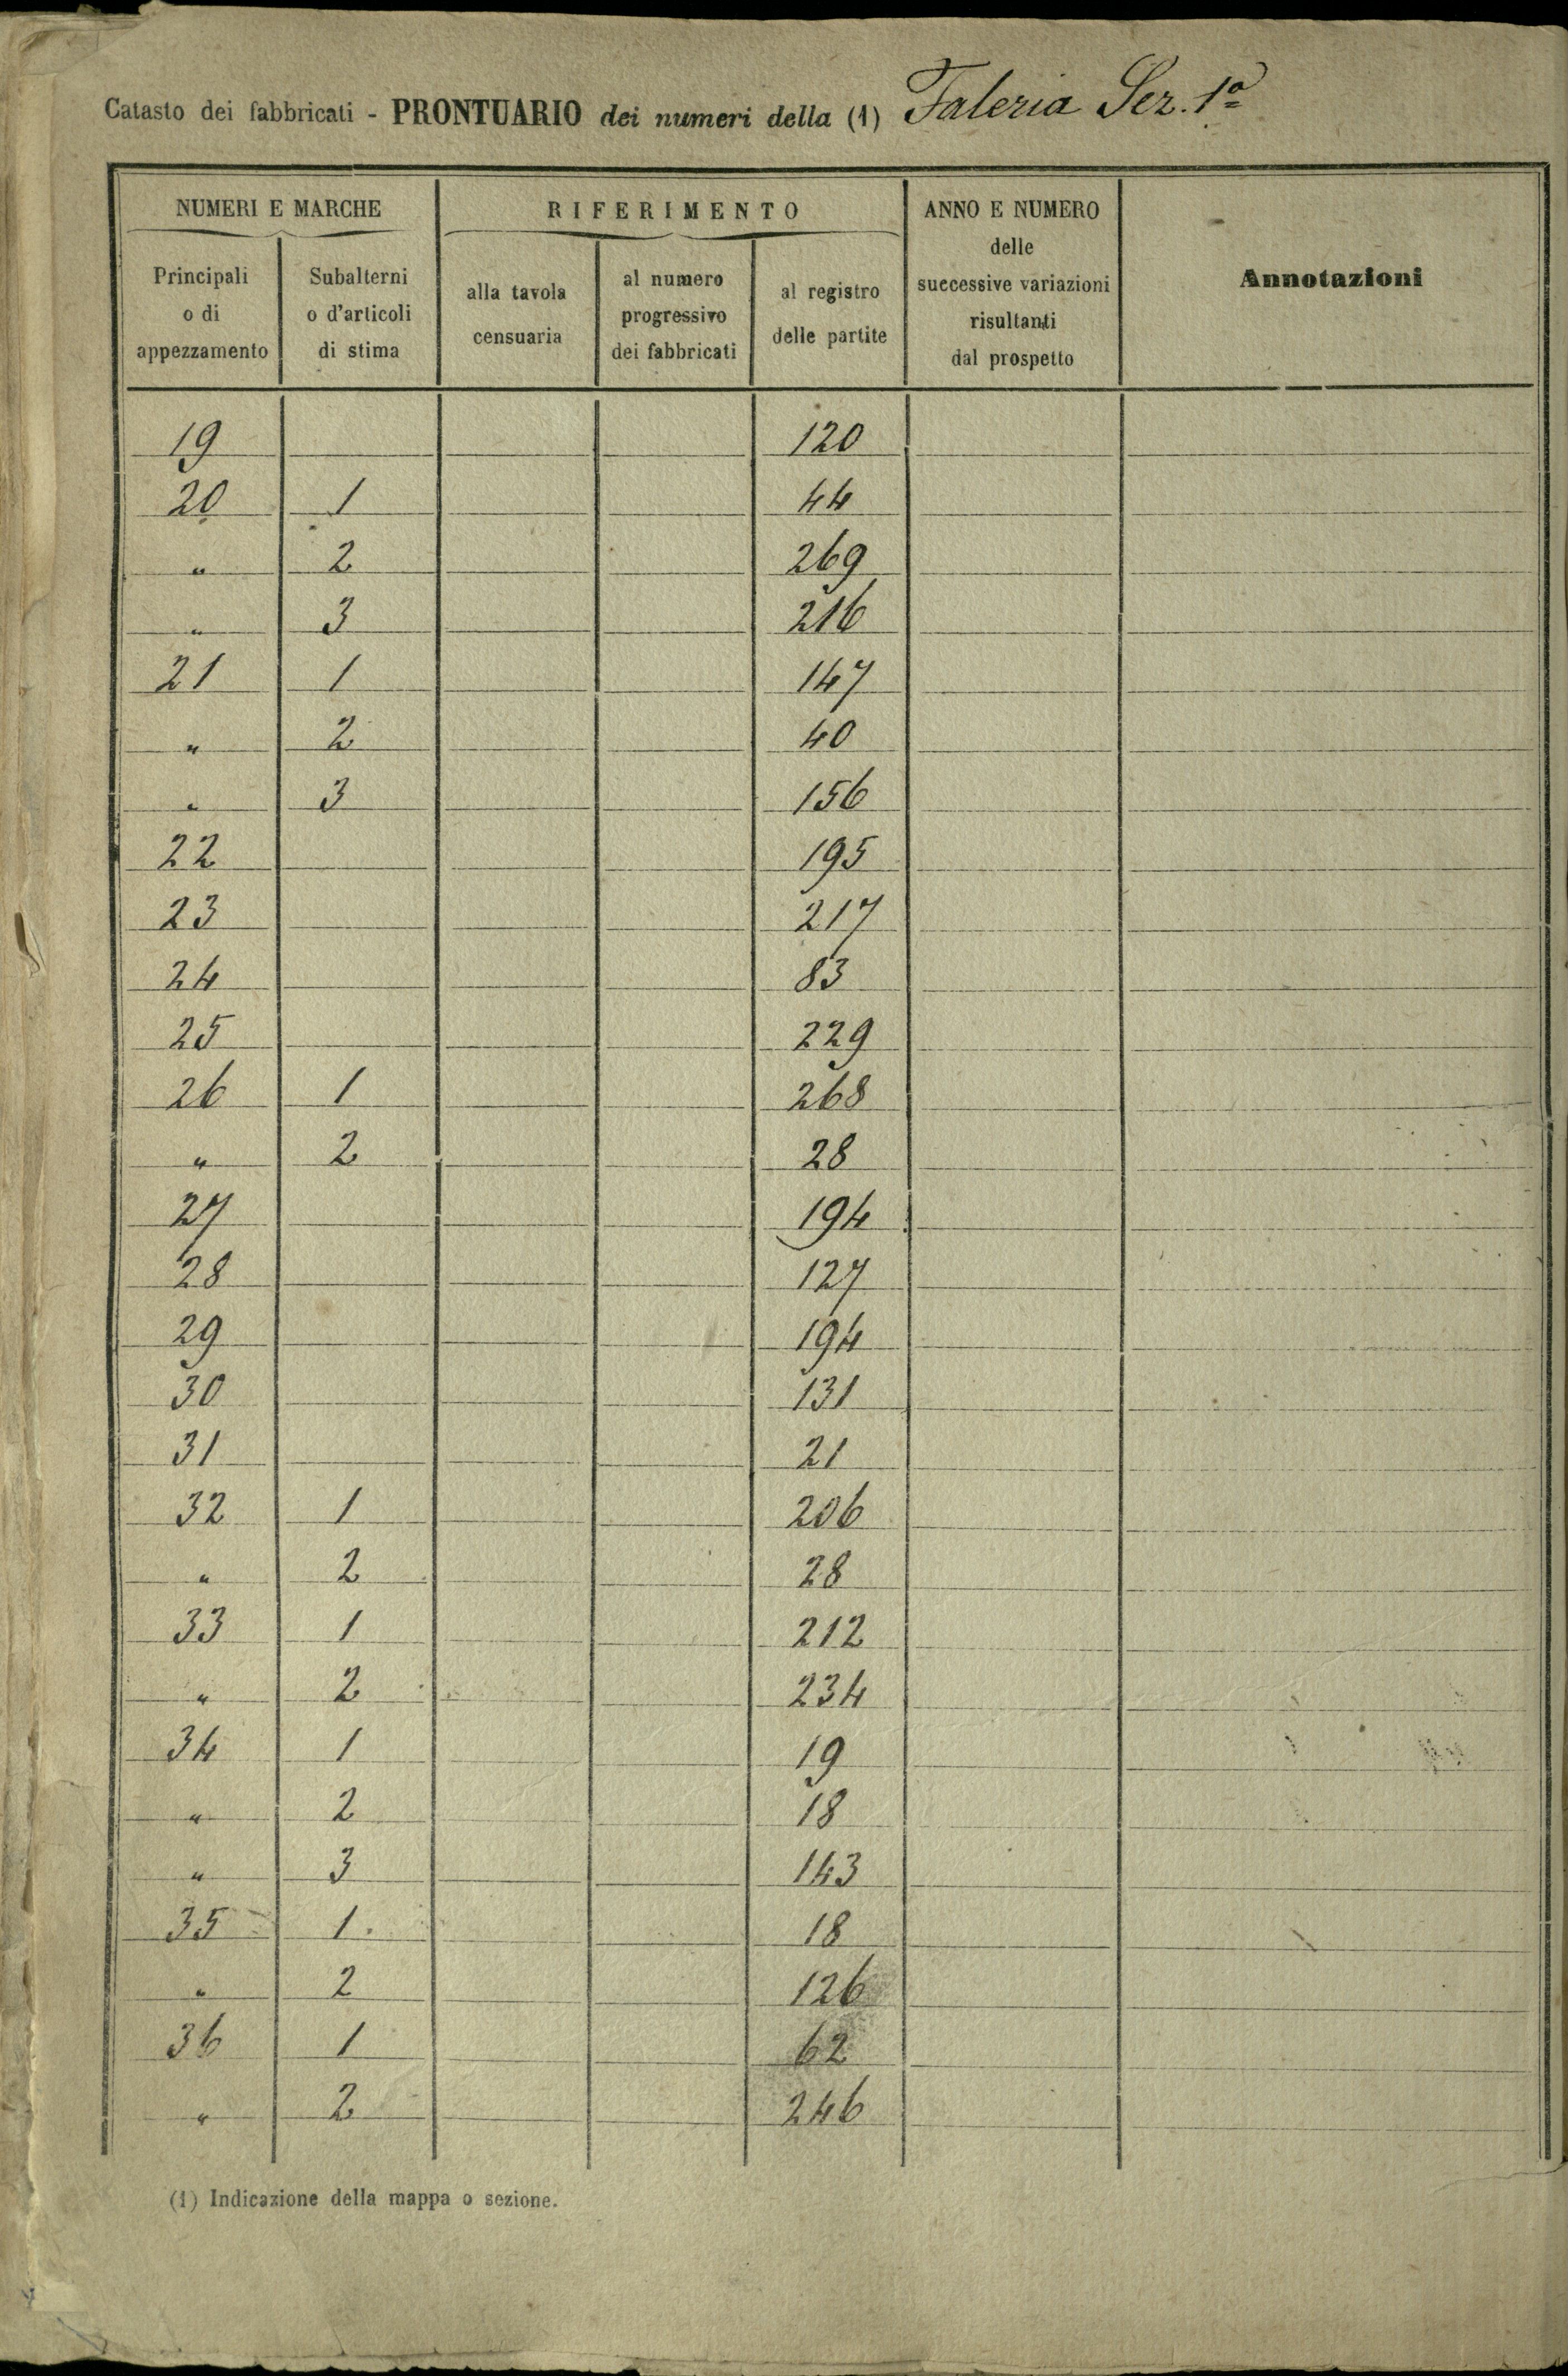 Catasto dei fabbricati - PRONTUARIO dei numeri della (1) Faleria Sez. 1ª
NUMERI E MARCHE RIFERIMENTO ANNO E NUMERO delle successive variazioni risultanti dal prospetto Annotazioni
Principali o di appezzamento Subalterni o d'articoli di stima alla tavola censuaria al numero progressivo dei fabbricati al registro delle partite
19 120
20 1 44
" 2 269
" 3 216
21 1 147
" 2 40
" 3 156
22 195
23 217
24 83
25 229
26 1 268
" 2 28
27 194
28 127
29 194
30 131
31 21
32 1 206
" 2 28
33 1 212
" 2 234
34 1 19
" 2 18
" 3 143
35 1 18
" 2 126
36 1 62
" 2 246
(1) Indicazione della mappa o sezione.